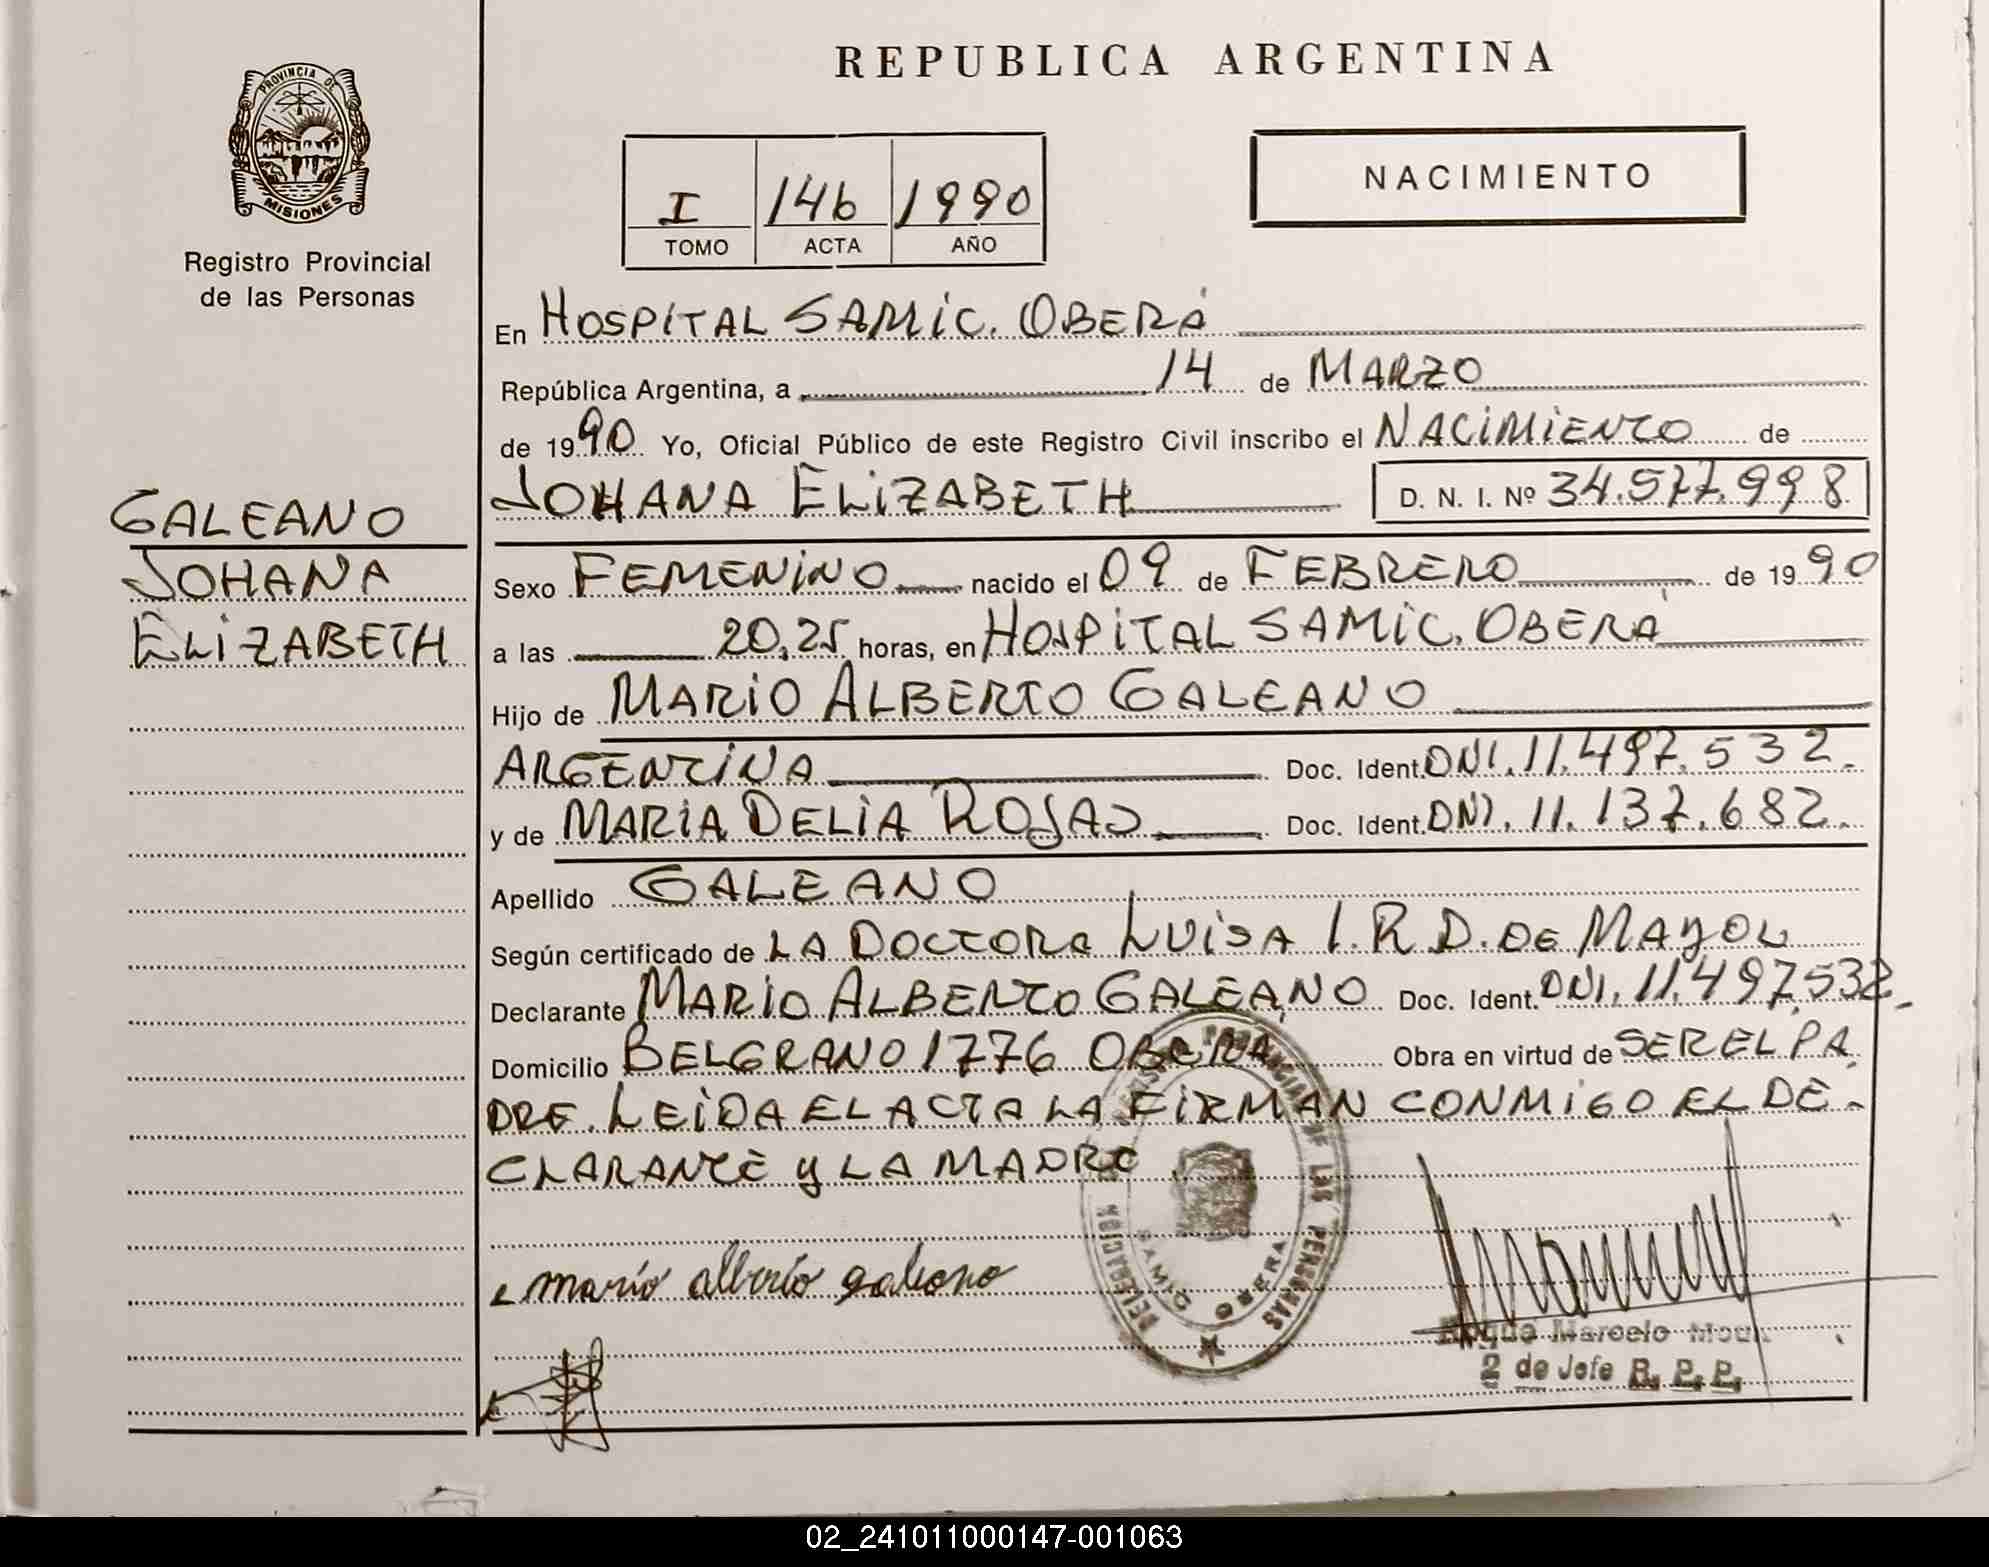 PROVINCIA DE
MISIONES
Registro Provincial
de las Personas
GALEANO
JOHANA
ELIZABETH
REPUBLICA ARGENTINA
I 146 1990
TOMO ACTA AÑO
NACIMIENTO
En HOSPITAL SAMIC. OBERÁ
República Argentina, a 14 de MARZO
de 1990 Yo, Oficial Público de este Registro Civil inscribo el NACIMIENTO de
JOHANA ELIZABETH D. N. I. Nº 34.577.998
Sexo FEMENINO nacido el 09 de FEBRERO de 1990
a las 20,25 horas, en HOSPITAL SAMIC. OBERÁ
Hijo de MARIO ALBERTO GALEANO
ARGENTINA Doc. Ident. DNI. 11.497.532.
y de MARIA DELIA ROJAS Doc. Ident. DNI. 11.137.682.
Apellido GALEANO
Según certificado de LA DOCTORA LUISA I. R. D. DE MAYOL
Declarante MARIO ALBERTO GALEANO Doc. Ident. DNI. 11.497.532.
Domicilio BELGRANO 1776 OBERA Obra en virtud de SER EL PA
DRE. LEIDA EL ACTA LA FIRMAN CONMIGO EL DE-
CLARANTE y LA MADRE.
mario alberto galeano
DELEGACION
DE LAS PERSONAS
SAMIC OBERA
Roque Marcelo
2 de Jefe R. P. P.
02_241011000147-001063